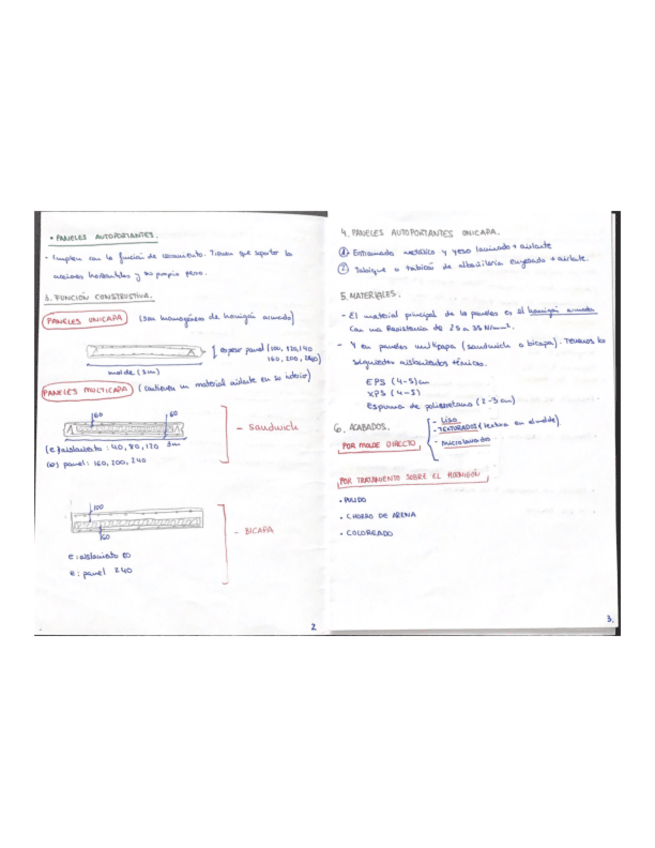 • PANELES AUTOPORTANTES.
- Cumplen con la función de cerramiento. Tienen que soportar las
acciones horizontales y su propio peso.
3. FUNCIÓN CONSTRUCTIVA.
PANELES UNICAPA (son homogéneos de hormigón armado)
espesor panel (100, 120, 140
160, 200, 240)
molde (3m)
PANELES MULTICAPA (contienen un material aislante en su interior)
60 60
- Sandwich
(e) aislamiento: 40, 80, 120 3m
(e) panel: 160, 200, 240
100
- BICAPA
60
e: aislamiento 80
e: panel 240
2
4. PANELES AUTOPORTANTES UNICAPA.
① Entramado metálico y yeso laminado + aislante
② Tabique o tabicón de albañilería enyesado + aislante.
5. MATERIALES.
- El material principal de los paneles es el hormigón armado
Con una Resistencia de 25 a 35 N/mm².
- Y en paneles multipapa (sandwich o bicapa). Tenemos los
Siguientes aislantes térmicos.
EPS (4-3) cm
XPS (4-5)
Espuma de poliuretano (2-3 cm)
6. ACABADOS.
- LISO
POR MOLDE DIRECTO - TEXTURADOS (textura en el molde).
- Microlavado
POR TRATAMIENTO SOBRE EL HORMIGÓN
• PULIDO
• CHORRO DE ARENA
• COLOREADO
3.